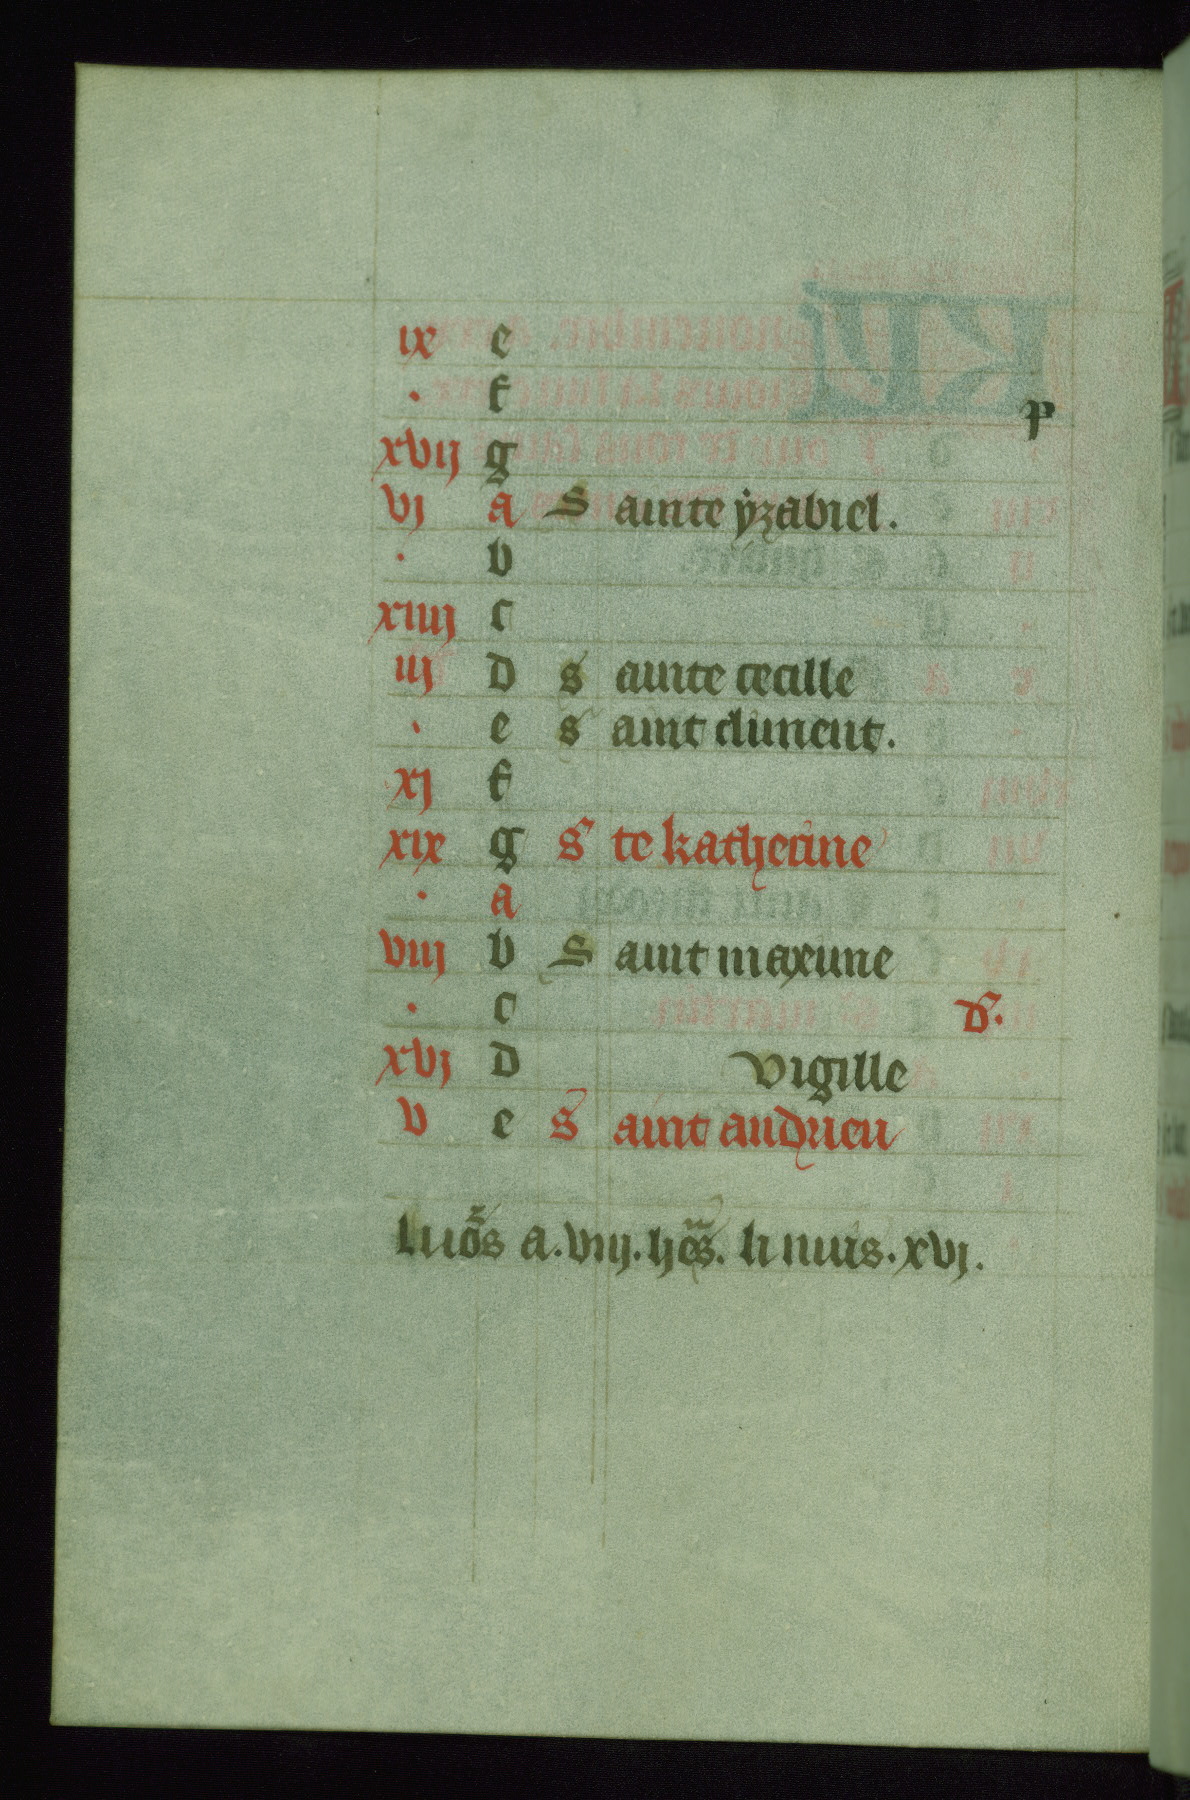 ix e
· f p
xvij g
vj a S ainte ẏzabiel.
· b
xiiij c
iij d s ainte cecille
· e s aint climent.
xj f
xix g S te katherine
· a
viij b S aint maxime
· c d.
xvj d vigille
v e S aint andrieu
li io͛s a. viij. he͛s. li nuis. xvj.